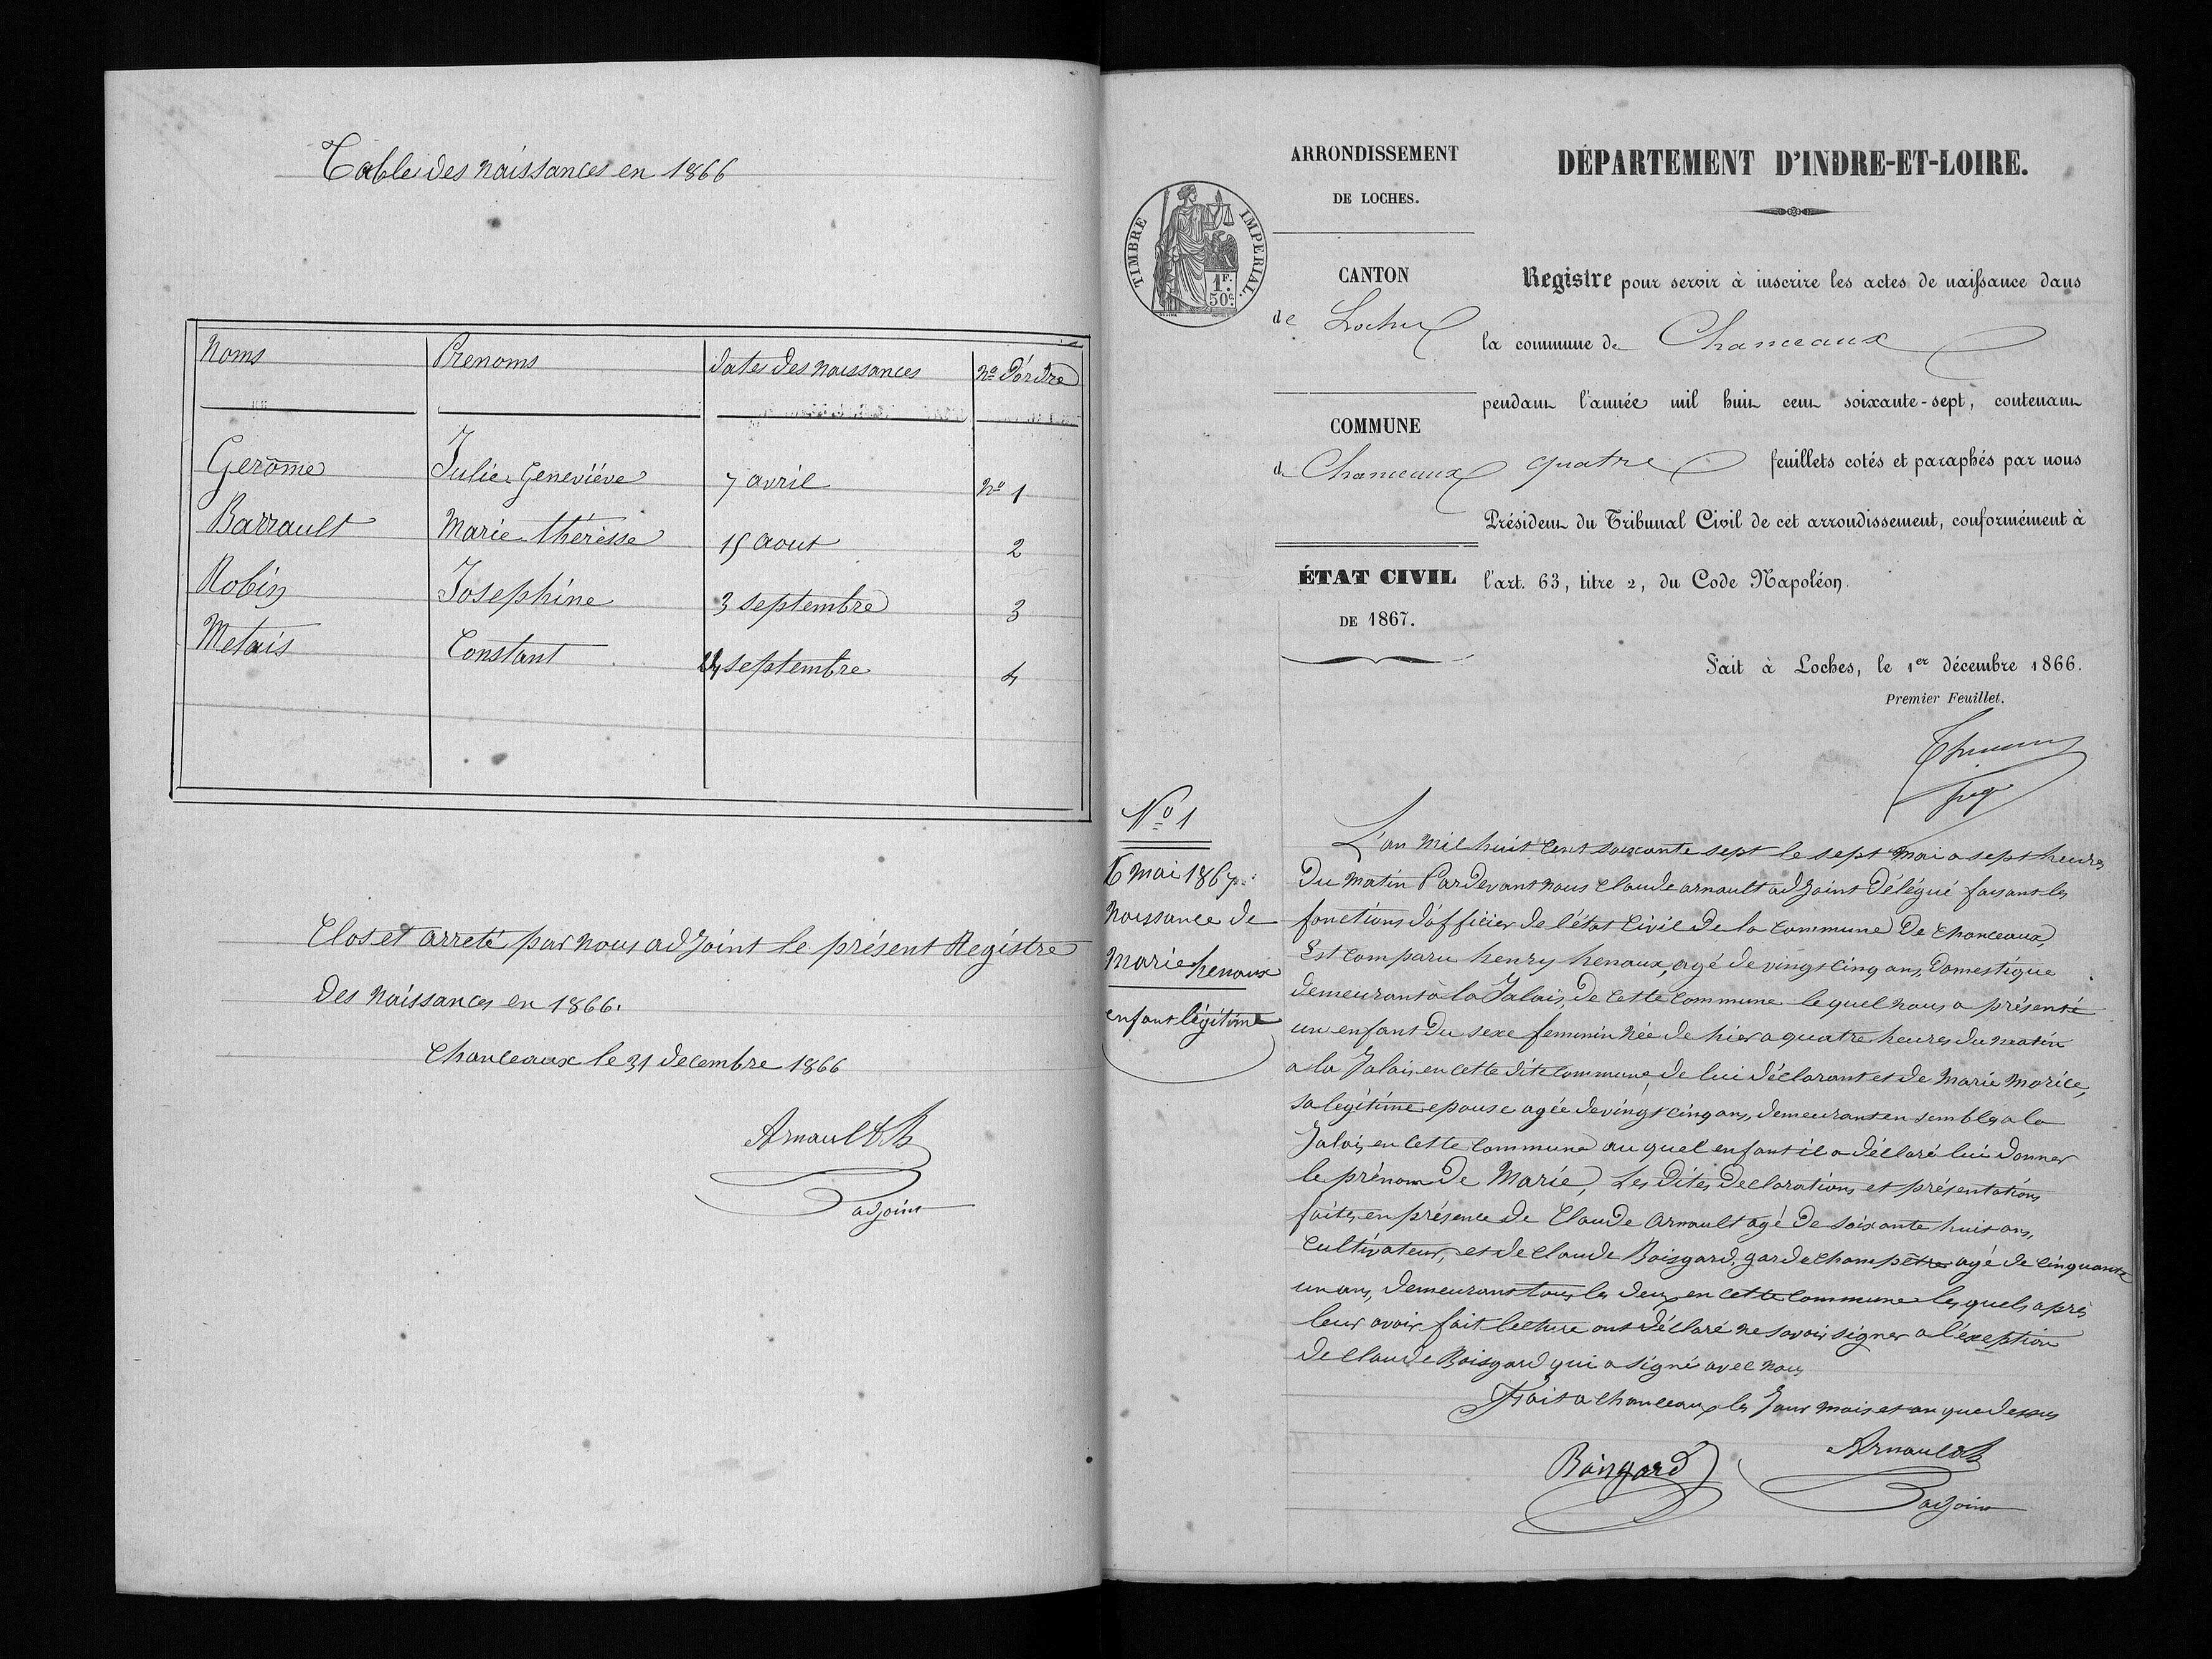 Table des naissances en 1866
Noms Prenoms dates des naissances No d'ordre
Gerôme Julie Geneviéve 7 avril no 1
Barrault Marie thérèsse 15 aout 2
Robin Josephine 3 septembre 3
Metais Constant septembre 4
Clos et arreté par nous adjoint le présent Registre
des naissances en 1866.
Chanceaux le 31 decembre 1866
Arnault
adjoint
ARRONDISSEMENT
DE LOCHES.
TIMBRE IMPERIAL.
1F.
50c.
CANTON
de Loches
COMMUNE
de Chanceaux
ÉTAT CIVIL
DE 1867.
DÉPARTEMENT D'INDRE-ET-LOIRE.
Registre pour servir à inscrire les actes de naissance dans
la commune de Chanceaux
pendant l'année mil huit cent soixante-sept, contenant
quatre feuillets cotés et paraphés par nous
Président du Tribunal Civil de cet arrondissement, conformément à
l'art. 63, titre 2, du Code Napoléon.
Fait à Loches, le 1er décembre 1866.
Premier Feuillet.
No 1
6 mai 1867
naissance de
Marie henaux
enfant légitime
L'an mil huit cent soixante sept le sept mai a sept heures
du matin Pardevant nous Claude arnault adjoint délégué faisant les
fonctions d'officier de l'état civil de la commune de Chanceaux,
Est comparu henry henaux, agé de vingt cinq ans, domestique
demeurant à la Jalais, de cette commune lequel nous a présenté
un enfant du sexe feminin née de hier a quatre heures du matin
a la Jalais en cette dite commune, de lui déclarant et de Marie Morice,
sa legitime epouse agée de vingt cinq ans, demeurant ensembles a la
Jalais, en cette commune au quel enfant il a déclaré lui donner
le prénom de Marie, Les dites declarations et présentations
faites en présence de Claude Arnault agé de soixante huit ans,
Cultivateur, et de Claude Boisgard, garde champêtre agé de cinquante
un ans, demeurant tous les deux en cette commune les quels après
leur avoir fait lecture ont déclaré ne savoir signer a l'éxeption
de Claude Boisgard qui a signé avec nous
Fait a chanceaux les jour mois et an que dessus
Boisgard
Arnault
adjoint